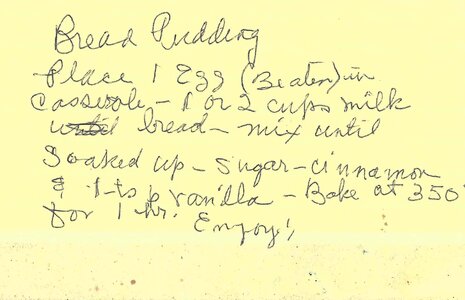 Bread Pudding
Place 1 Egg (Beaten) in
casserole - 1 or 2 cups milk
bread - mix until
Soaked up - sugar - cinnamon
& 1 tsp vanilla - Bake at 350°
for 1 hr. Enjoy!